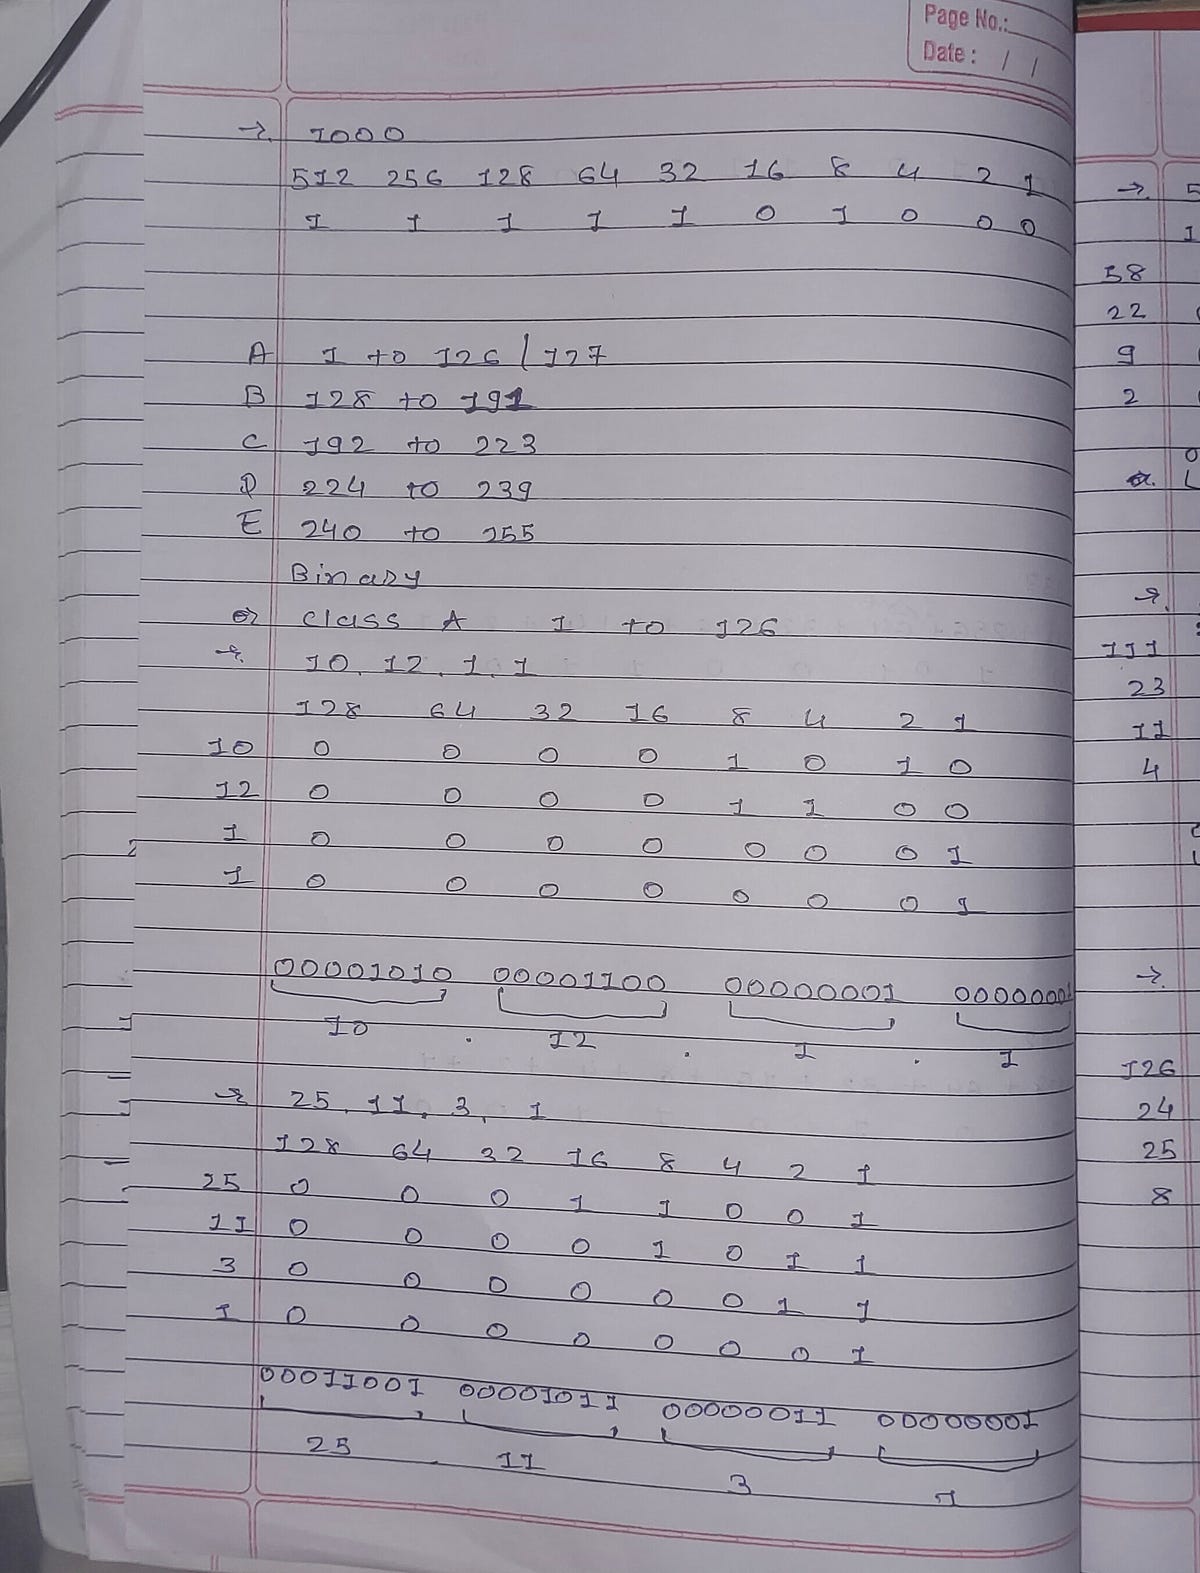 Page No.:
Date :   /   /
→ 1000
512 256 128 64 32 16 8 4 2 1
1 1 1 1 1 0 1 0 0 0
A 1 to 126 / 127
B 128 to 191
C 192 to 223
D 224 to 239
E 240 to 255
Binary
class A 1 to 126
→ 10. 12. 1. 1
128 64 32 16 8 4 2 1
10 0 0 0 0 1 0 1 0
12 0 0 0 0 1 1 0 0
1 0 0 0 0 0 0 0 1
1 0 0 0 0 0 0 0 1
00001010 00001100 00000001 00000001
10 . 12 . 1 . 1
→ 25. 11. 3. 1
128 64 32 16 8 4 2 1
25 0 0 0 1 1 0 0 1
11 0 0 0 0 1 0 1 1
3 0 0 0 0 0 0 1 1
1 0 0 0 0 0 0 0 1
00011001 00001011 00000011 00000001
25 . 11 3 1
→ 5
1
58
22
9
2
→
111
23
11
4
→
126
24
25
8